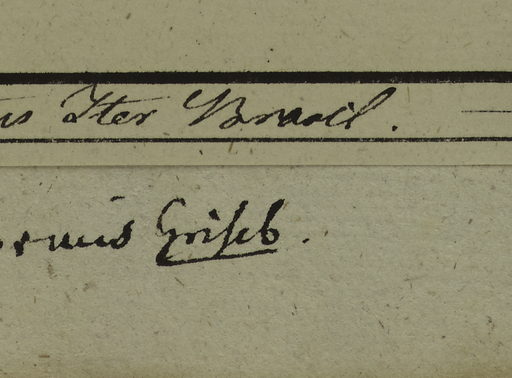 us Iter Brasil.
ormis Griseb.